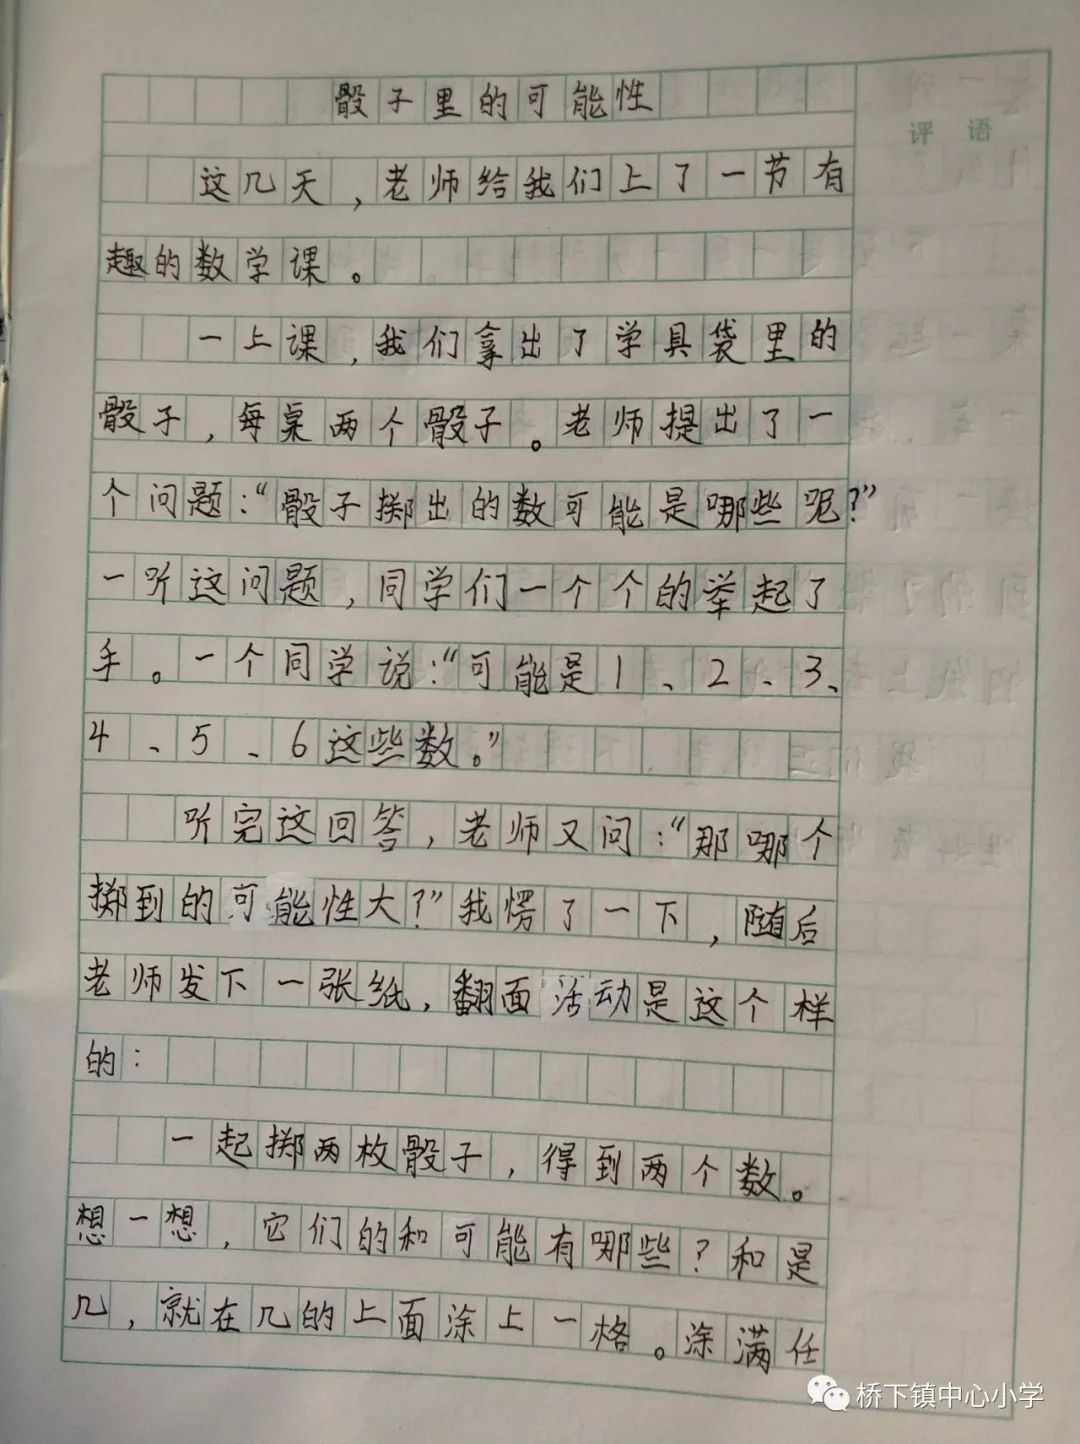 骰子里的可能性
评语
这几天，老师给我们上了一节有
趣的数学课。
一上课，我们拿出了学具袋里的
骰子，每桌两个骰子。老师提出了一
个问题：“骰子掷出的数可能是哪些呢？”
一听这问题，同学们一个个的举起了
手。一个同学说：“可能是1、2、3、
4、5、6这些数。”
听完这回答，老师又问：“那哪个
掷到的可能性大？”我愣了一下，随后
老师发下一张纸，翻面活动是这个样
的：
一起掷两枚骰子，得到两个数。
想一想，它们的和可能有哪些？和是
几，就在几的上面涂上一格。涂满任
桥下镇中心小学